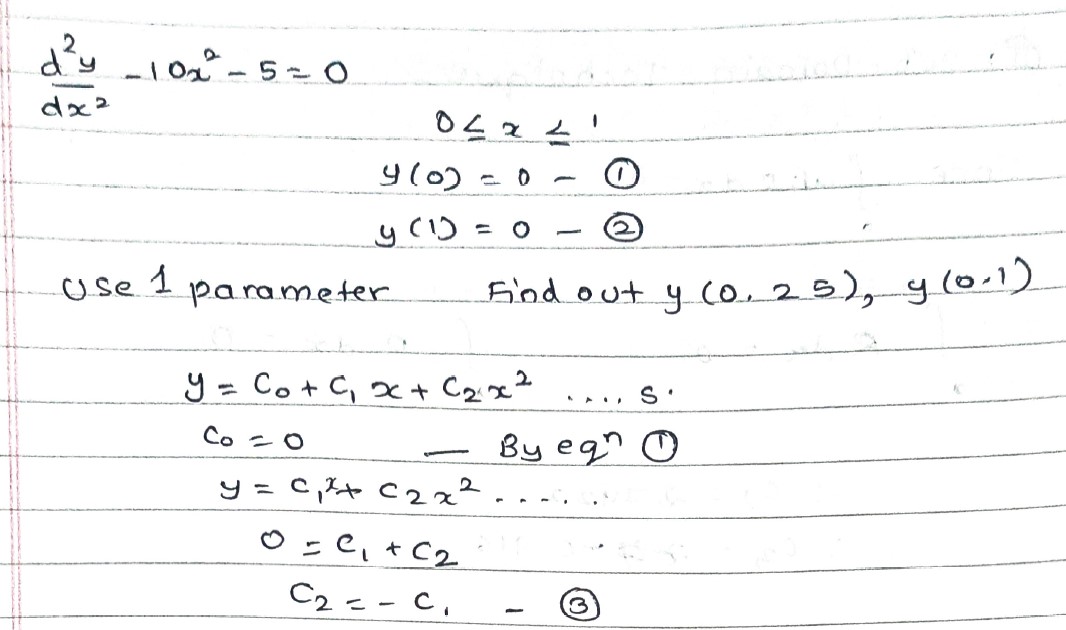 d²y/dx² - 10x² - 5 = 0
0 ≤ x ≤ 1
y(0) = 0 - ①
y(1) = 0 - ②
Use 1 parameter Find out y(0.25), y(0.1)
y = C₀ + C₁ x + C₂ x² .... s.
C₀ = 0 — By eqⁿ ①
y = C₁x + C₂x² .....
0 = C₁ + C₂
C₂ = - C₁ - ③